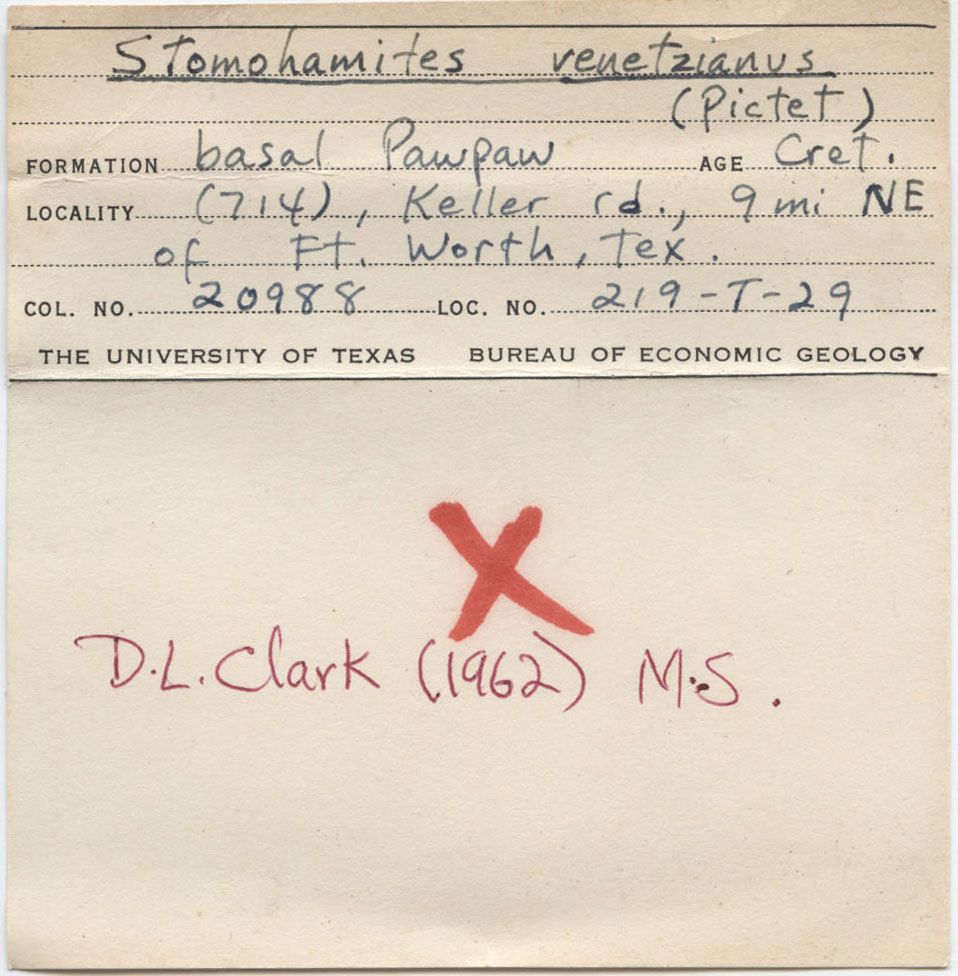 Stomohamites venetzianus
(Pictet)
FORMATION basal Pawpaw AGE Cret.
LOCALITY (714), Keller rd., 9 mi NE
of Ft. Worth, Tex.
COL. NO. 20988 LOC. NO. 219-T-29
THE UNIVERSITY OF TEXAS BUREAU OF ECONOMIC GEOLOGY
X
D.L. Clark (1962) M.S.